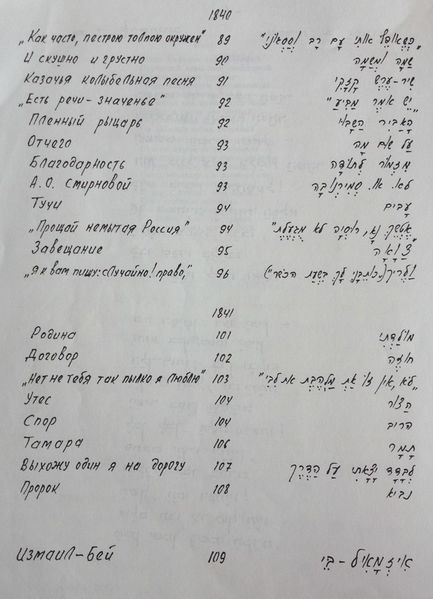 1840
„Как часто, пестрою толпою окружен" 89
И скушно и грустно 90
Казачья колыбельная песня 91 שיר-ערש קוזקי
„Есть речи - значенье" 92
Пленный рыцарь 92 האביר השבוי
Отчего 93 על שום מה
Благодарность 93 מזמור לתודה
А. О. Смирновой 93
Тучи 94 עבים
„Прощай немытая Россия" 94
Завещание 95 צואה
„Я к вам пишу: случайно! право," 96
1841
Родина 101 מולדתי
Договор 102 חוזה
„Нет не тебя так пылко я люблю" 103 "לא, אין זו את מלהבת את לבי"
Утес 104 הצור
Спор 104 הריב
Тамара 106 תמר
Выхожу один я на дорогу 107 לבדד יצאתי על הדרך
Пророк 108 נביא
Измаил-Бей 109 איזמאיל-ביי